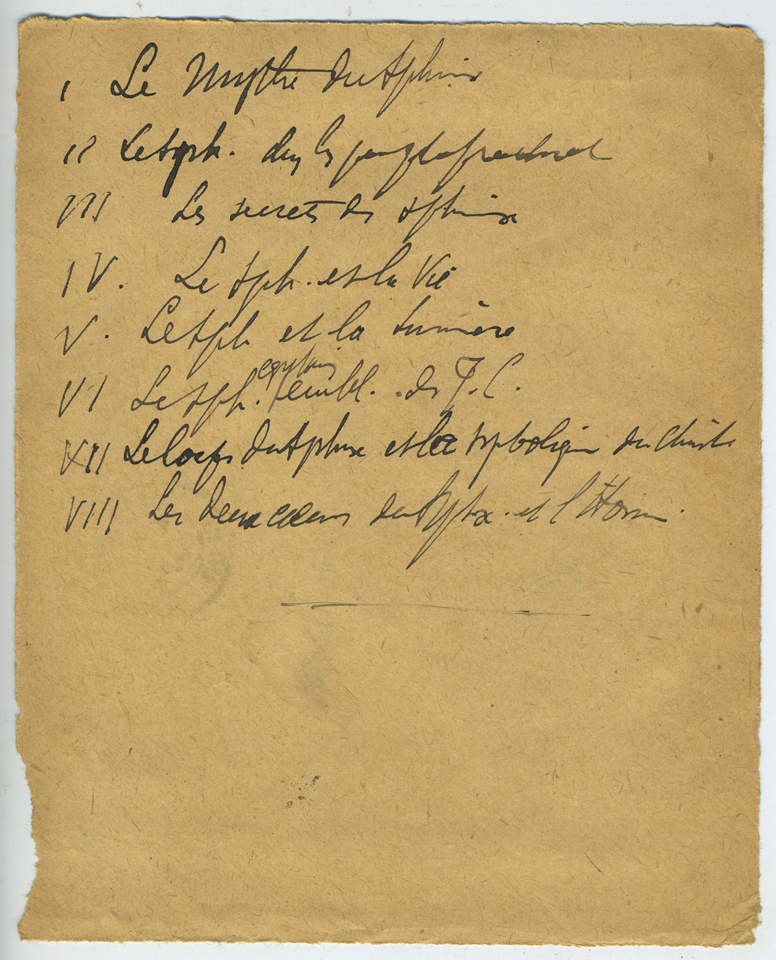 I Le Mythe du Sphinx
II Le Sph. dans les
III Les secrets du sphinx
IV. Le Sph. et la Vie
V. Le Sph et la Lumière
VI Le Sph. égyptien embl. de J. C.
XII Le corps du Sphinx et la symbolique du Christ
VIII Les deux cœurs du Sphx. et l'Homme.